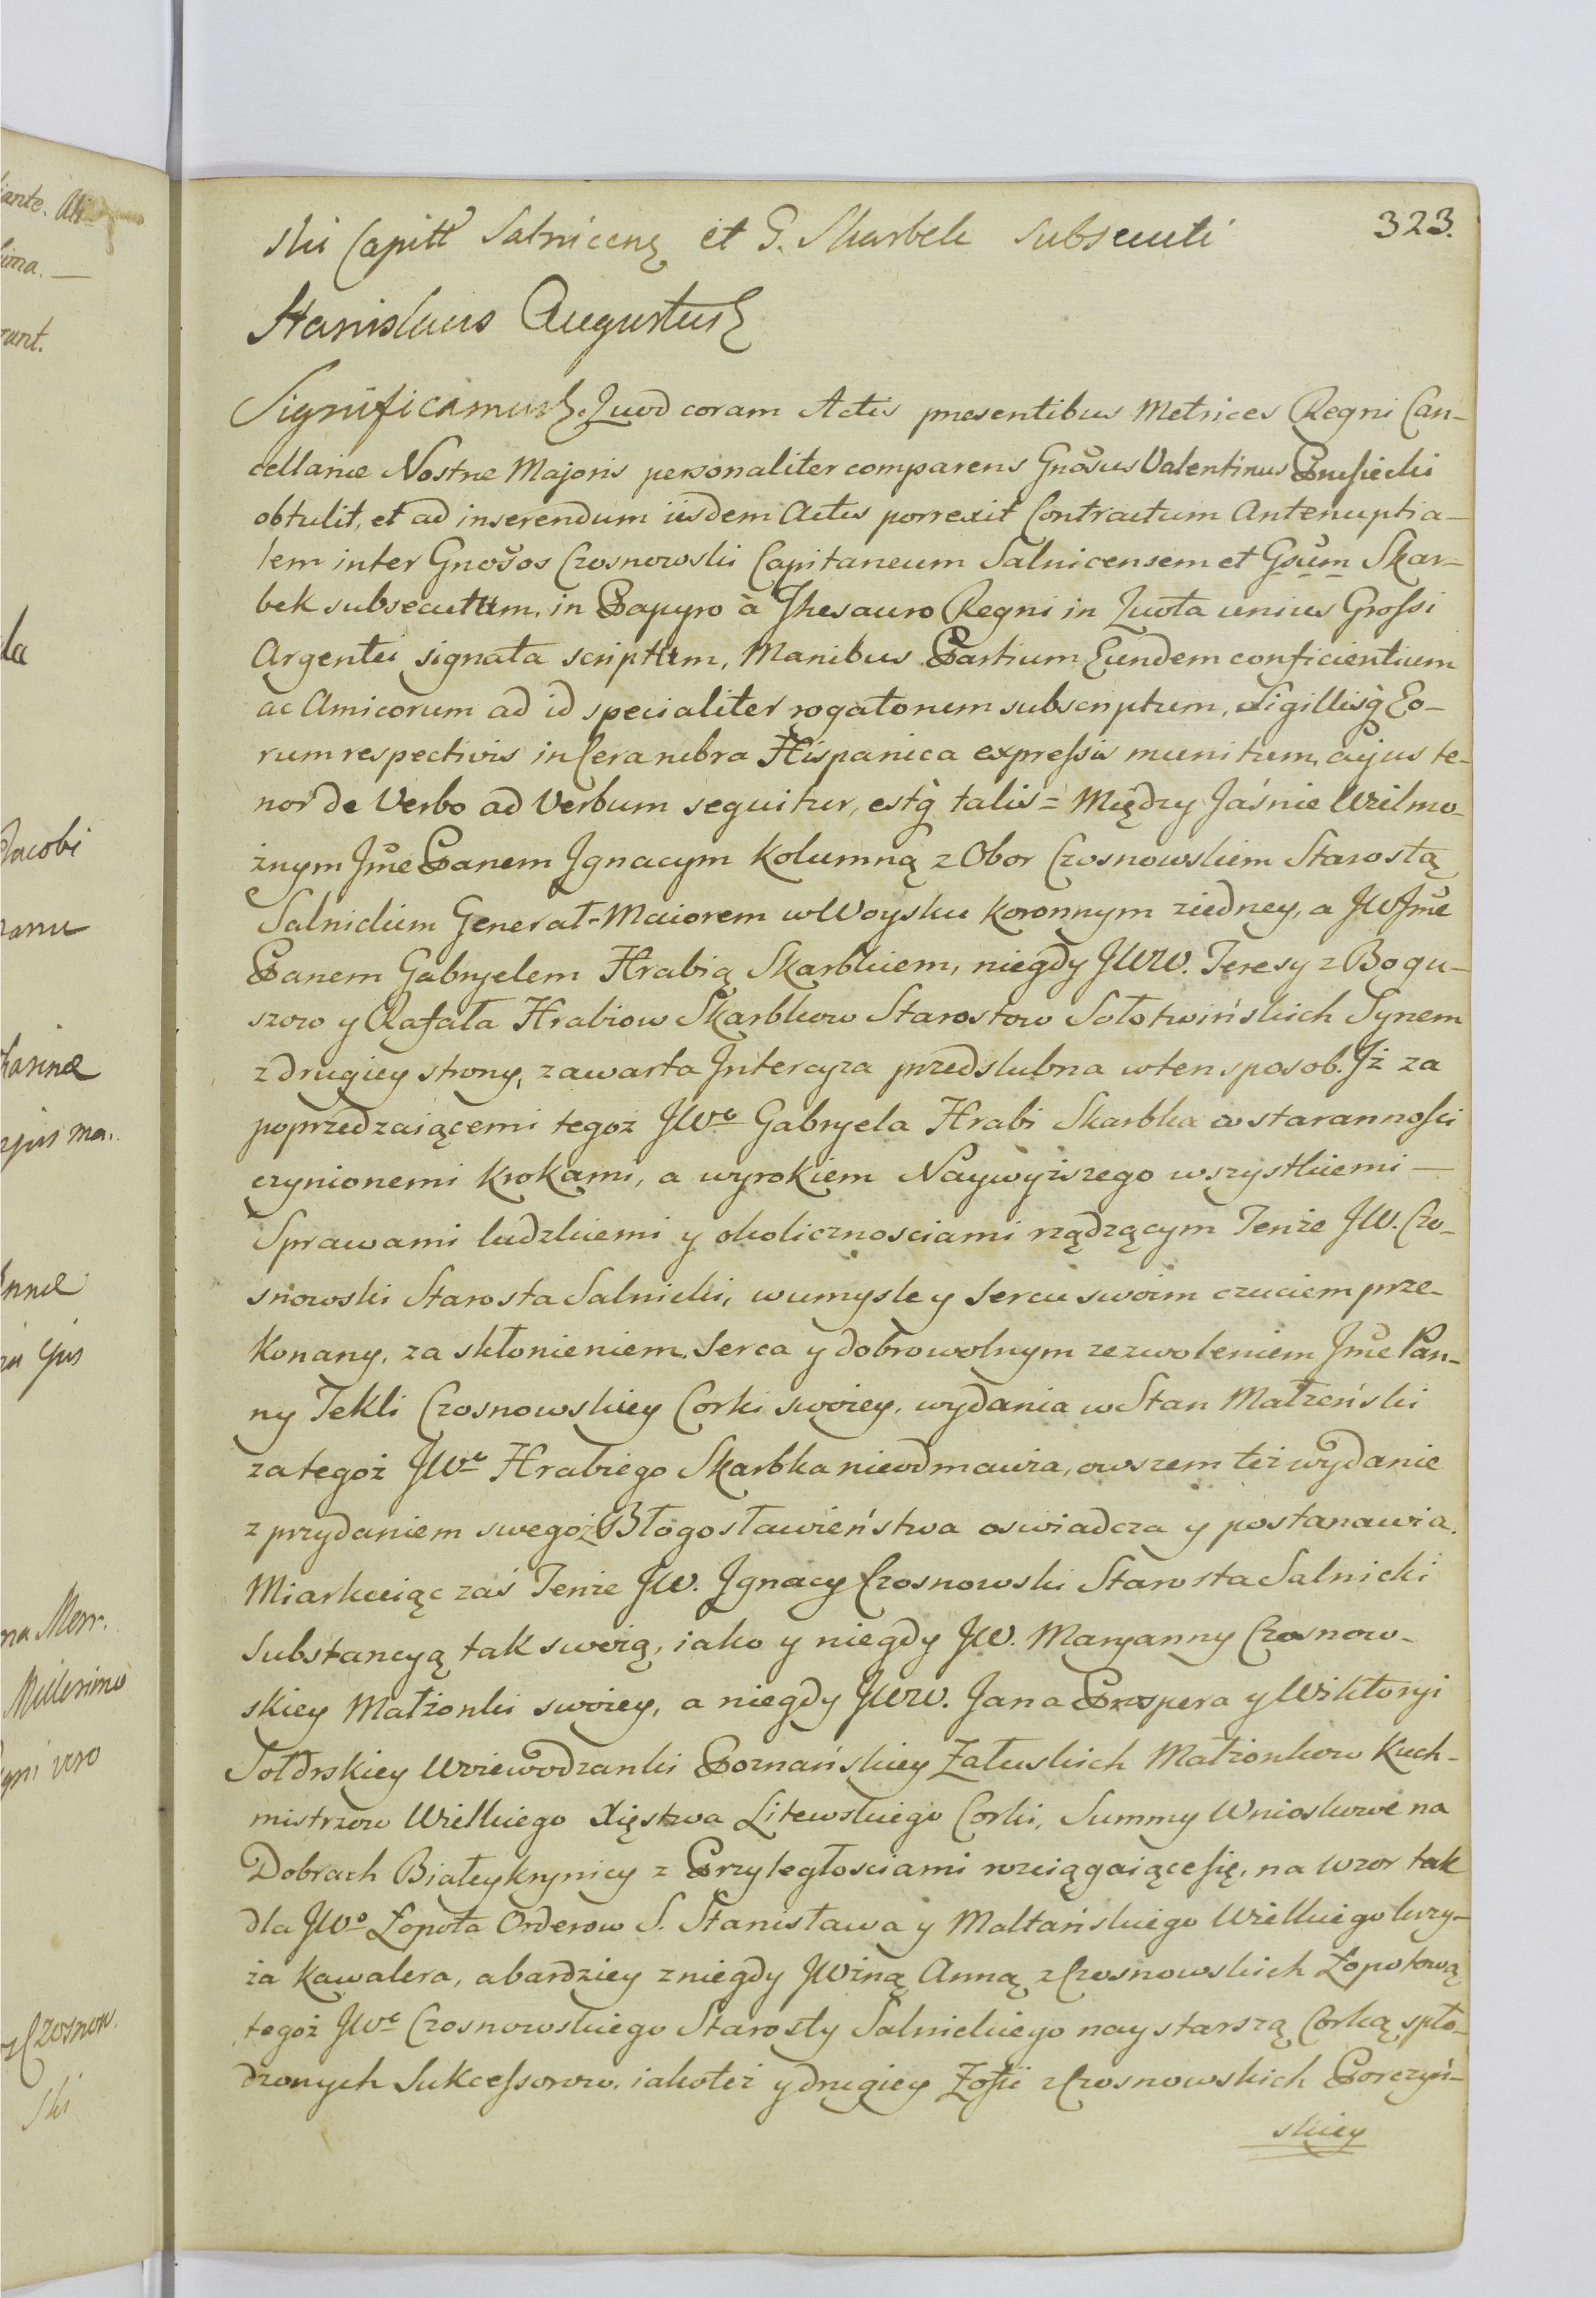 323.
ski Capitt Salnicens et G. Skarbek subsecuti
Stanislaus Augustus
Significamus. Quod coram Actis presentibus Metrices Regni Can-
cellariæ Nostræ Majoris personaliter comparens Gnosus Valentinus Prusiecki
obtulit, et ad inserendum iisdem Actis porrexit Contractum Antenuptia-
lem inter Gnosos Czosnowski Capitaneum Salnicensem et Gsum Skar-
bek subsecutum, in Papyro à Thesauro Regni in Quota unius Grossi
Argentei signata scriptum, Manibus Partium Eundem conficientium
ac Amicorum ad id specialiter rogatorum subscriptum, Sigillisq Eo-
rum respectivis in Cera rubra Hispanica expressis munitum, cujus te-
nor de Verbo ad Verbum sequitur, estq talis = Między Jaśnie Wielmo-
żnym Jmc Panem Jgnacym Kolumną z Obor Czosnowskiem Starostą
Salnickim Generał-Maiorem w Woysku Koronnym ziedney, a JW Jmc
Panem Gabryelem Hrabią Skarbkiem, niegdy JWW. Teresy z Bogu-
szow y Rafała Hrabiow Skarbkow Starostow Sołotwińskich Synem
z drugiey strony, zawarta Jntercyza przedslubna w ten sposob. Jż za
poprzedzaiącemi tegoż JWo Gabryela Hrabi Skarbka o starannosci
czynionemi krokami, a wyrokiem Naywyższego wszystkiemi —
Sprawami ludzkiemi y okolicznosciami rządzącym Tenże JW. Czo-
snowski Starosta Salnicki, w umysle y sercu swoim czuciem prze-
konany, za skłonieniem Serca y dobrowolnym zezwoleniem Jmc Pan-
ny Tekli Czosnowskiey Corki swoiey, wydania w Stan Małżeński
za tegoż JWo Hrabiego Skarbka nieodmawia, owszem też wydanie
z przydaniem swegoż Błogosławieństwa oswiadcza y postanawia.
Miarkuiąc zaś Tenże JW. Jgnacy Czosnowski Starosta Salnicki
Substancyą tak swoią, iako y niegdy JW. Maryanny Czosnow-
skiey Małżonki swoiey, a niegdy JWW. Jana Prospera y Wiktoryi
Sołdrskiey Woiewodzanki Poznańskiey Załuskich Małżonkow Kuch-
mistrzow Wielkiego Xięstwa Litewskiego Corki, Summy Wnioskowe na
Dobrach Białeykrynicy z Przyległosciami rozciągaiącesię, na wzor tak
dla JWo Łopota Orderow S. Stanisława y Maltańskiego Wielkiego krzy-
ża Kawalera, a bardziey z niegdy JWżną Anną z Czosnowskich Łopotową
tegoż JWo Czosnowskiego Starosty Salnickiego naystarszą Corką spło-
dzonych Sukcessorow, iakoteż y drugiey Zofii z Czosnowskich Porczyń-
skiey